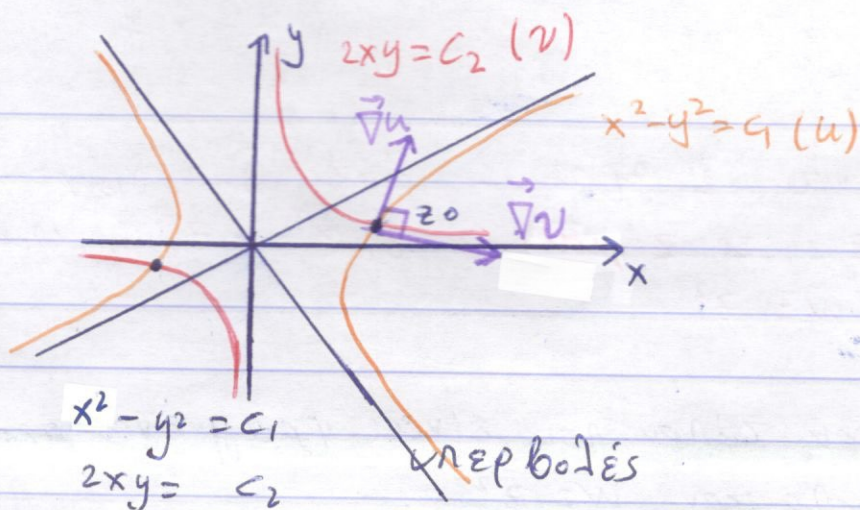 y
2xy = C₂ (v)
∇⃗u
x² - y² = C₁ (u)
z₀
∇⃗v
x
x² - y² = C₁
2xy = C₂
υπερβολές